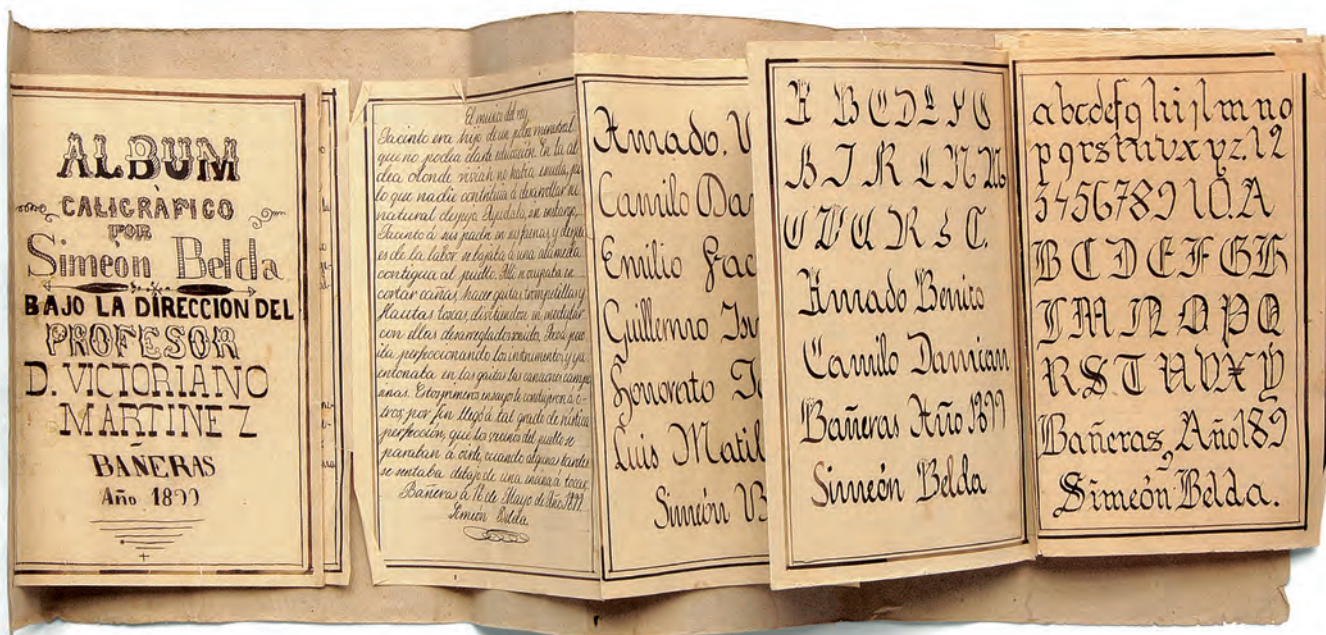 ALBUM
CALIGRÀFICO
POR
Simeòn Belda
BAJO LA DIRECCION DEL
PROFESOR
D. VICTORIANO
MARTINEZ
BAÑERAS
Año 1899
El músico del rey
Jacinto era hijo de un pobre menestral
que no podia darle educación. En la al
dea donde vivian no habia escuela, por
lo que nadie contribuia á desarrollar su
natural despejo. Ayudaba, sin embargo,
Jacinto á sus padres en sus faenas, y despu
es de la labor se bajaba á una alameda
contigua al pueblo. Alli se ocupaba en
cortar cañas, hacer gaitas, trompetillas y
flautas toscas, divirtiendose en modular
con ellas desarreglado sonido. Poco á poco
iba perfeccionando los instrumentos y ya
entonaba en las gaitas las canciones campe
sinas. Estos primeros ensayos le condujeron a o-
tros, por fin llegó á tal grado de rústica
perfección, que los vecinos del pueblo se
paraban á oirle, cuando algunas tardes
se sentaba debajo de una encina á tocar.
Bañeras á 16 de Mayo de Año 1899
Simeón Belda
Amado. V
Camilo Da
Emilio Fac
Guillermo Is
Honorato
Luis Matil
Simeón B
A B C D E F G
H I J K L N M
O P Q R S C.
Amado Benito
Camilo Damian
Bañeras Año 1899
Simeón Belda
a b c d e f g h i j l m n o
p q r s t u v x y z. 1 2
3 4 5 6 7 8 9 10. A
B C D E F G H
I M N O P Q
R S T U V X Y
Bañeras, Año 189
Simeón Belda.